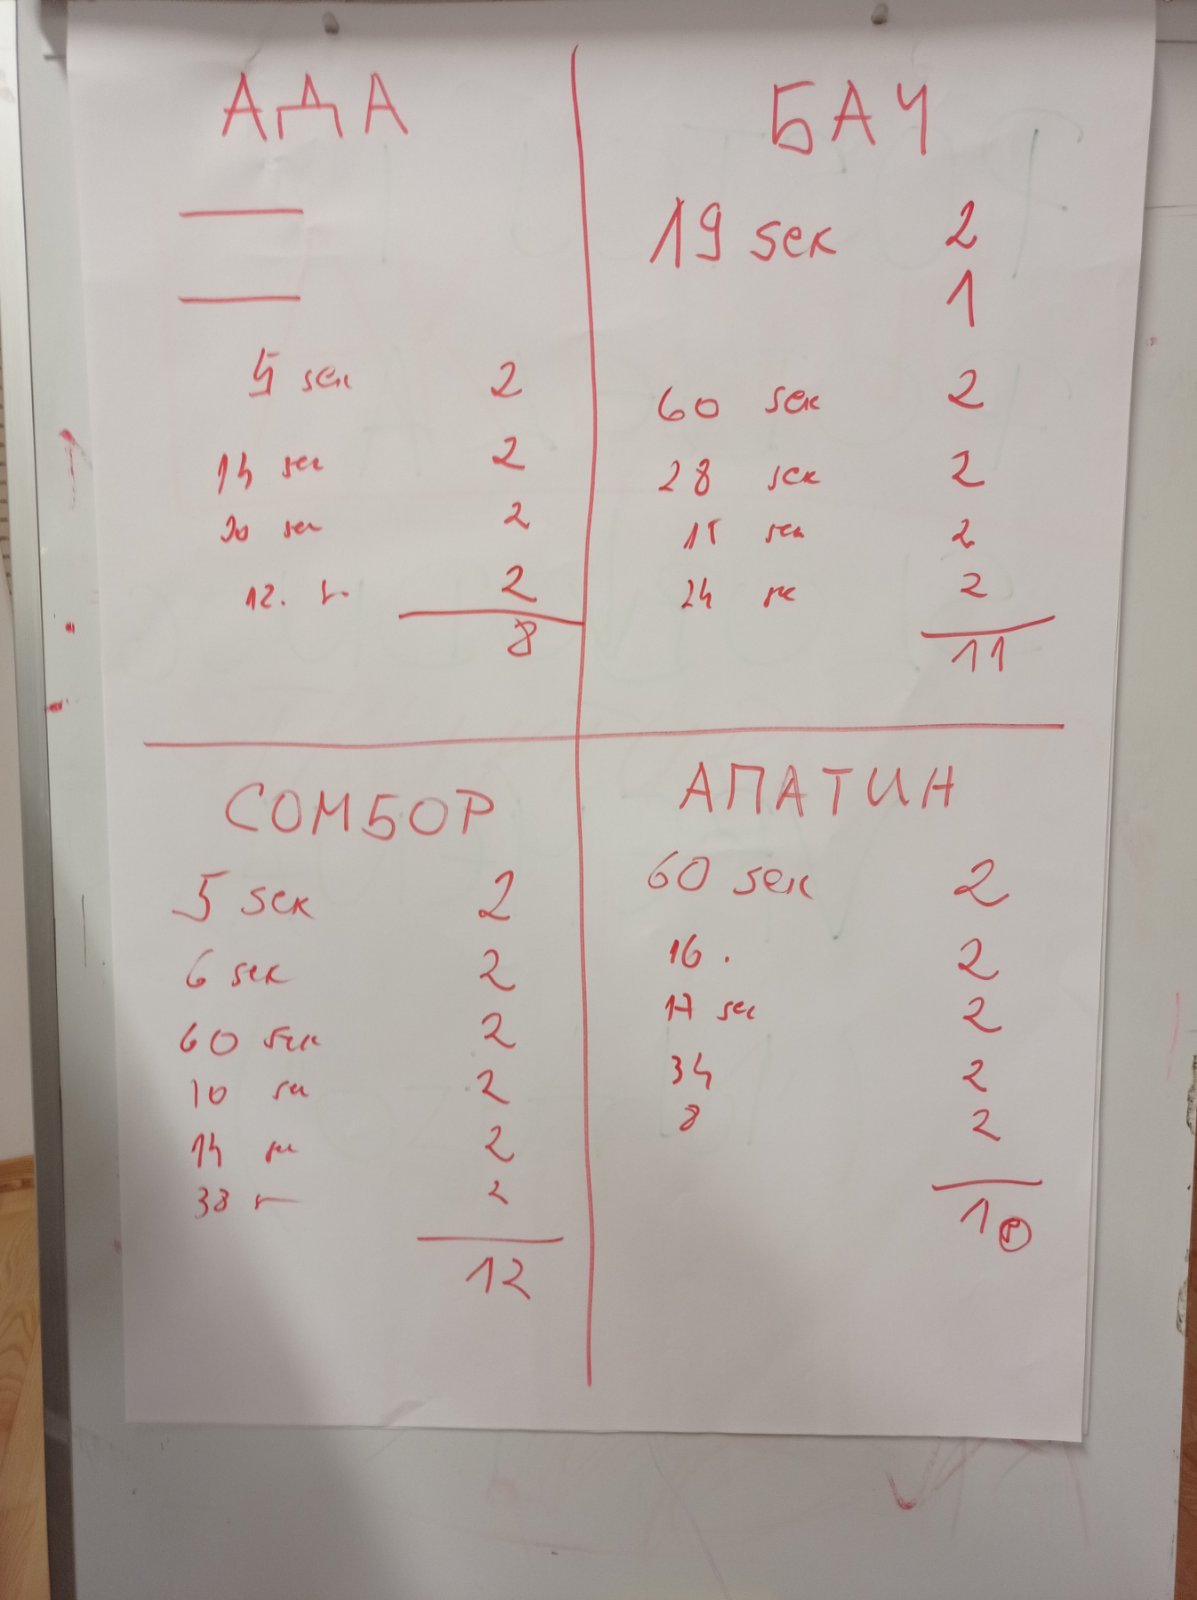 АДА
5 sek 2
14 sek 2
20 sek 2
12. 2
8
БАЧ
19 sek 2
1
60 sek 2
28 sek 2
15 sek 2
24 sek 2
11
СОМБОР
5 sek 2
6 sek 2
60 sek 2
10 sek 2
14 sek 2
38 2
12
АПАТИН
60 sek 2
16. 2
17 sek 2
34 2
8 2
10